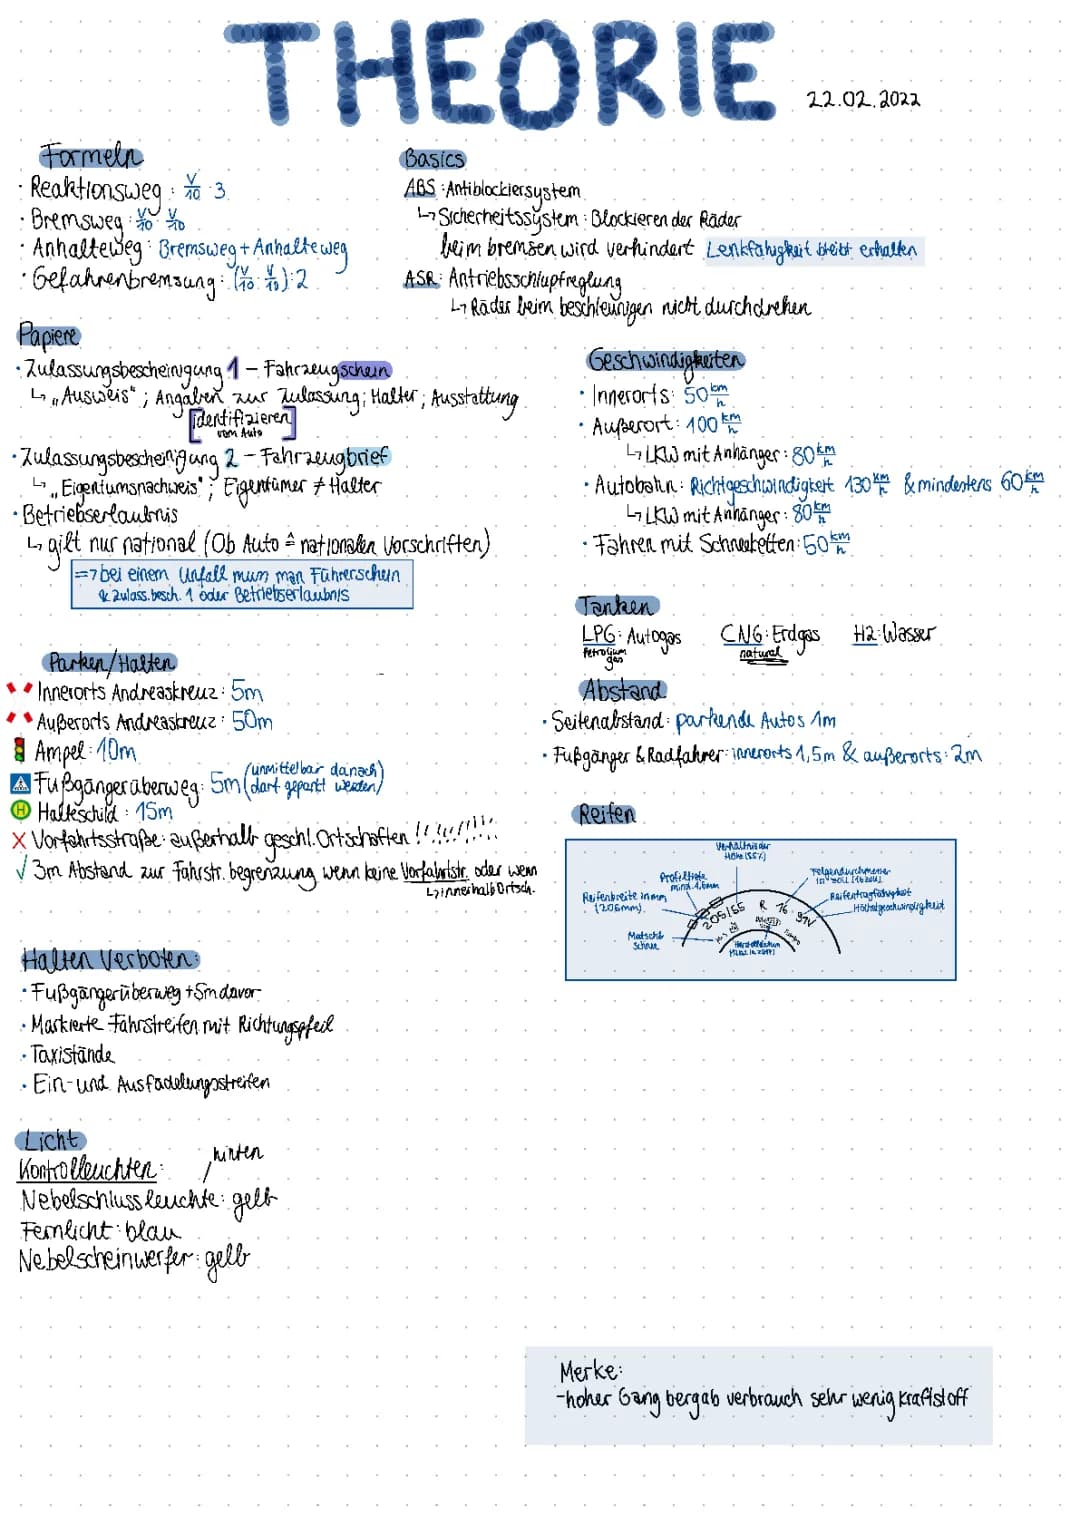 THEORIE
22.02.2022
Formeln
· Reaktionsweg : V/10 · 3
· Bremsweg : V/10 · V/10
· Anhalteweg : Bremsweg + Anhalteweg
· Gefahrenbremsung : (V/10 · V/10) : 2
Basics
ABS : Antiblockiersystem
↳ Sicherheitssystem : Blockieren der Räder
beim bremsen wird verhindert Lenkfähigkeit bleibt erhalten
ASR : Antriebsschlupfreglung
↳ Räder beim beschleunigen nicht durchdrehen
Papiere
· Zulassungsbescheinigung 1 – Fahrzeugschein
↳ „Ausweis" ; Angaben zur Zulassung ; Halter ; Ausstattung
[identifizieren
vom Auto]
· Zulassungsbescheinigung 2 – Fahrzeugbrief
↳ „Eigentumsnachweis" ; Eigentümer ≠ Halter
· Betriebserlaubnis
↳ gilt nur national (Ob Auto ≙ nationalen Vorschriften)
=> bei einem Unfall muss man Führerschein
& Zulass.besch. 1 oder Betriebserlaubnis
Geschwindigkeiten
· Innerorts: 50 km/h
· Außerort: 100 km/h
↳ LKW mit Anhänger : 80 km/h
· Autobahn : Richtgeschwindigkeit 130 km/h & mindestens 60 km/h
↳ LKW mit Anhänger : 80 km/h
· Fahren mit Schneeketten: 50 km/h
Tanken
LPG : Autogas CNG : Erdgas H2 : Wasser
Petrolium natural
gas
Parken/Halten
Innerorts Andreaskreuz : 5m
Außerorts Andreaskreuz : 50m
Ampel : 10m
Fußgängerüberweg : 5m (unmittelbar danach
darf geparkt werden)
H Halteschild : 15m
X Vorfahrtsstraße : außerhalb geschl. Ortschaften !!!!!!!!!
✓ 3m Abstand zur Fahrstr. begrenzung wenn keine Vorfahrtstr. oder wenn
↳ innerhalb Ortsch.
Abstand
· Seitenabstand : parkende Autos 1m
· Fußgänger & Radfahrer : innerorts 1,5m & außerorts : 2m
Reifen
Verhältnis der
Höhe (55%)
Profiltiefe
mind. 1,6mm
Felgendurchmesser
in Zoll (16 Zoll)
Reifenbreite in mm
(205mm)
Reifentragfähigkeit
Höchstgeschwindigkeit
205/55 R 16 91V
Matsch &
Schnee
M+S
Herstelldatum
Halten Verboten:
· Fußgängerüberweg + 5m davor
· Markierte Fahrstreifen mit Richtungspfeil
· Taxistände
· Ein- und Ausfädelungsstreifen
Licht
Kontrolleuchten :
hinten
Nebelschlussleuchte : gelb
Fernlicht : blau
Nebelscheinwerfer : gelb
Merke:
-hoher Gang bergab verbrauch sehr wenig kraftstoff